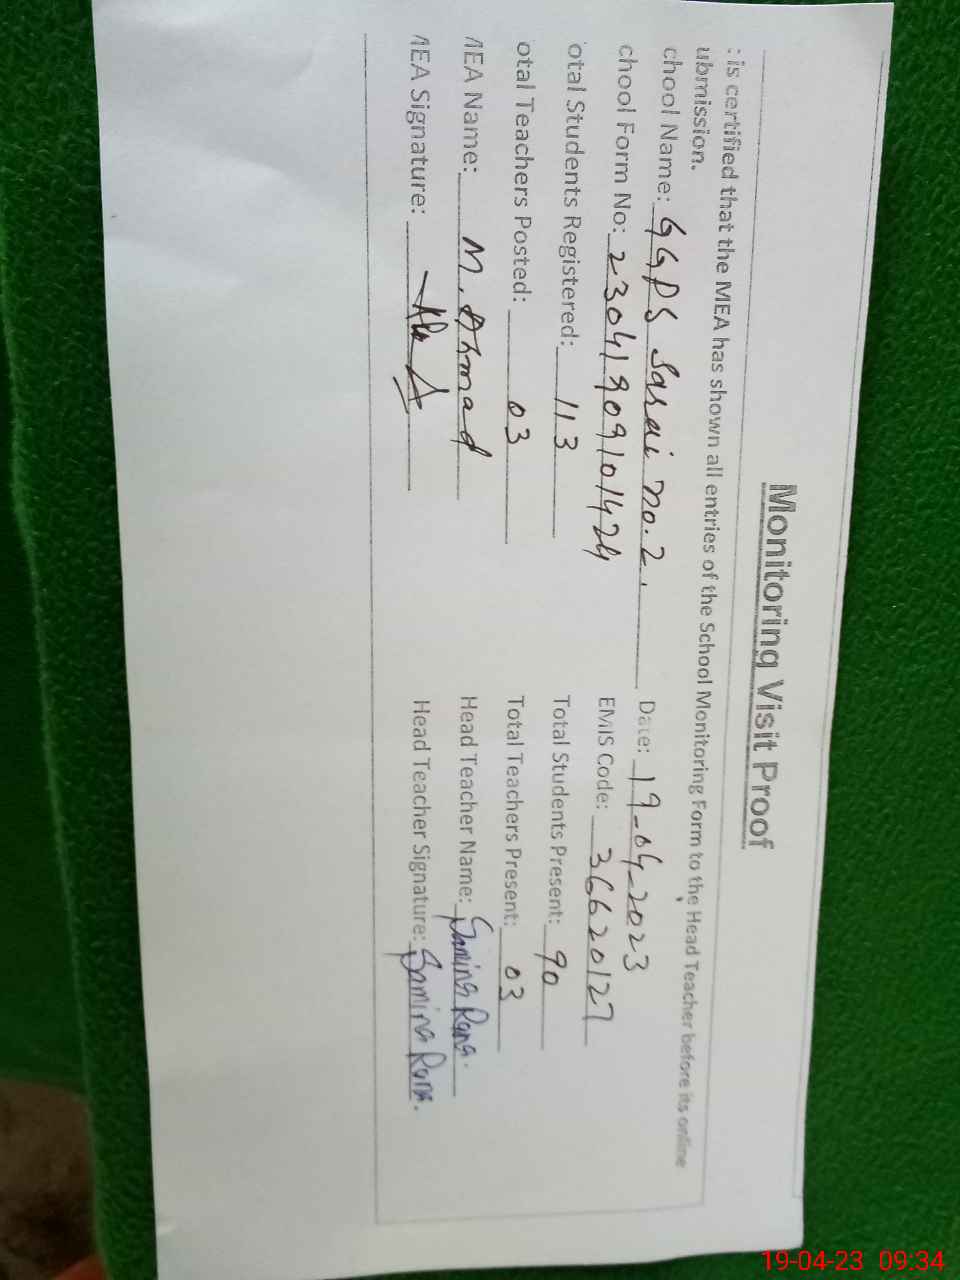 Monitoring Visit Proof
: is certified that the MEA has shown all entries of the School Monitoring Form to the Head Teacher before its online
ubmission.
chool Name: GGPS Sarai no.2. Date: 19-04-2023
chool Form No: 23041909101424 EMIS Code: 36620127
otal Students Registered: 113 Total Students Present: 90
otal Teachers Posted: 03 Total Teachers Present: 03
MEA Name: M. Ahmad Head Teacher Name: Samina Rana.
MEA Signature: Head Teacher Signature: Samina Rana.
19-04-23 09:34